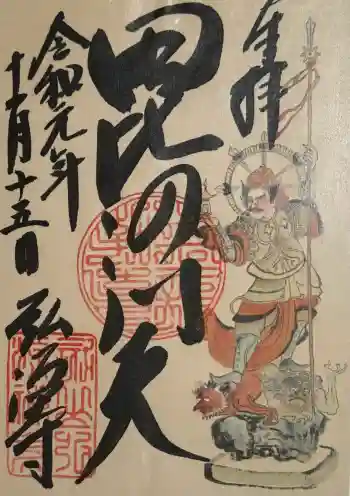 奉拝
毘沙門天
令和元年
十一月十五日
弘源寺